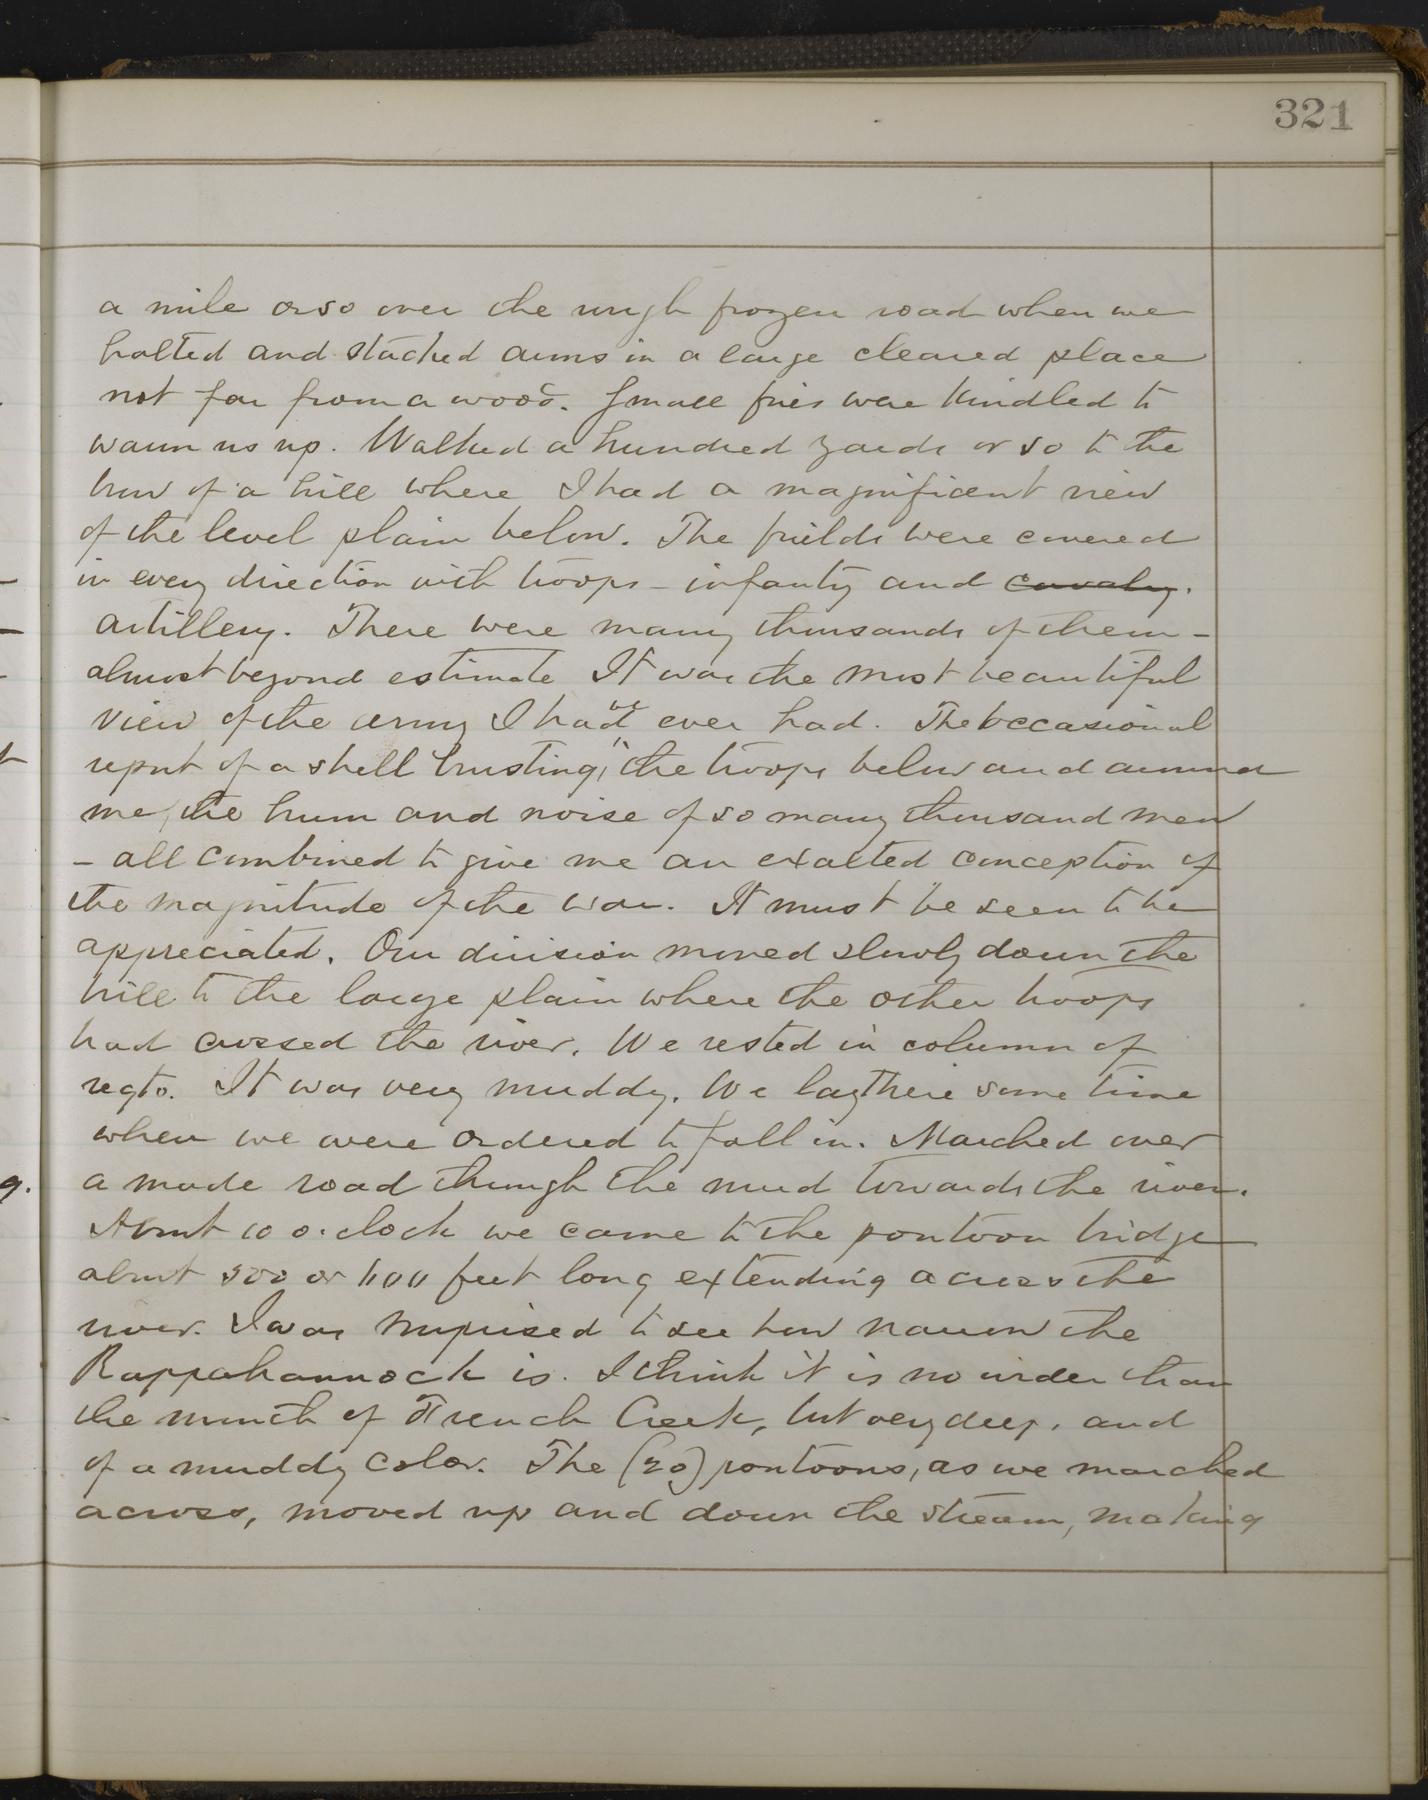 321
a mile or so over the rough frozen road when we
halted and stacked arms in a large cleared place
not far from a wood. Small fires were kindled to
warm us up. Walked a hundred yards or so to the
brow of a hill where I had a magnificent view
of the level plain below. The fields were covered
in every direction with troops - infanty and cavalry.
artillery. There were many thousands of them -
almost beyond estimate It was the most beautiful
view of the army I had ever had. The occasional
report of a shell bursting, the troops below and around
me, the hum and noise of so many thousand men
- all combined to give me an exalted conception of
the magnitude of the war. It must be seen to be
appreciated. Our division moved slowly down the
hill to the large plain where the other troops
had crossed the river. We rested in column of
regts. It was very muddy. We lay there some time
when we were ordered to fall in. Marched over
a made road through the mud towards the river.
About 10 o.clock we came to the pontoon bridge
about 500 or 600 feet long extending across the
river. I was surprised to see how narrow the
Rappahannock is. I think it is no wider than
the mouth of French Creek, but very deep, and
of a muddy color. The (20) pontoons, as we marched
across, moved up and down the stream, making